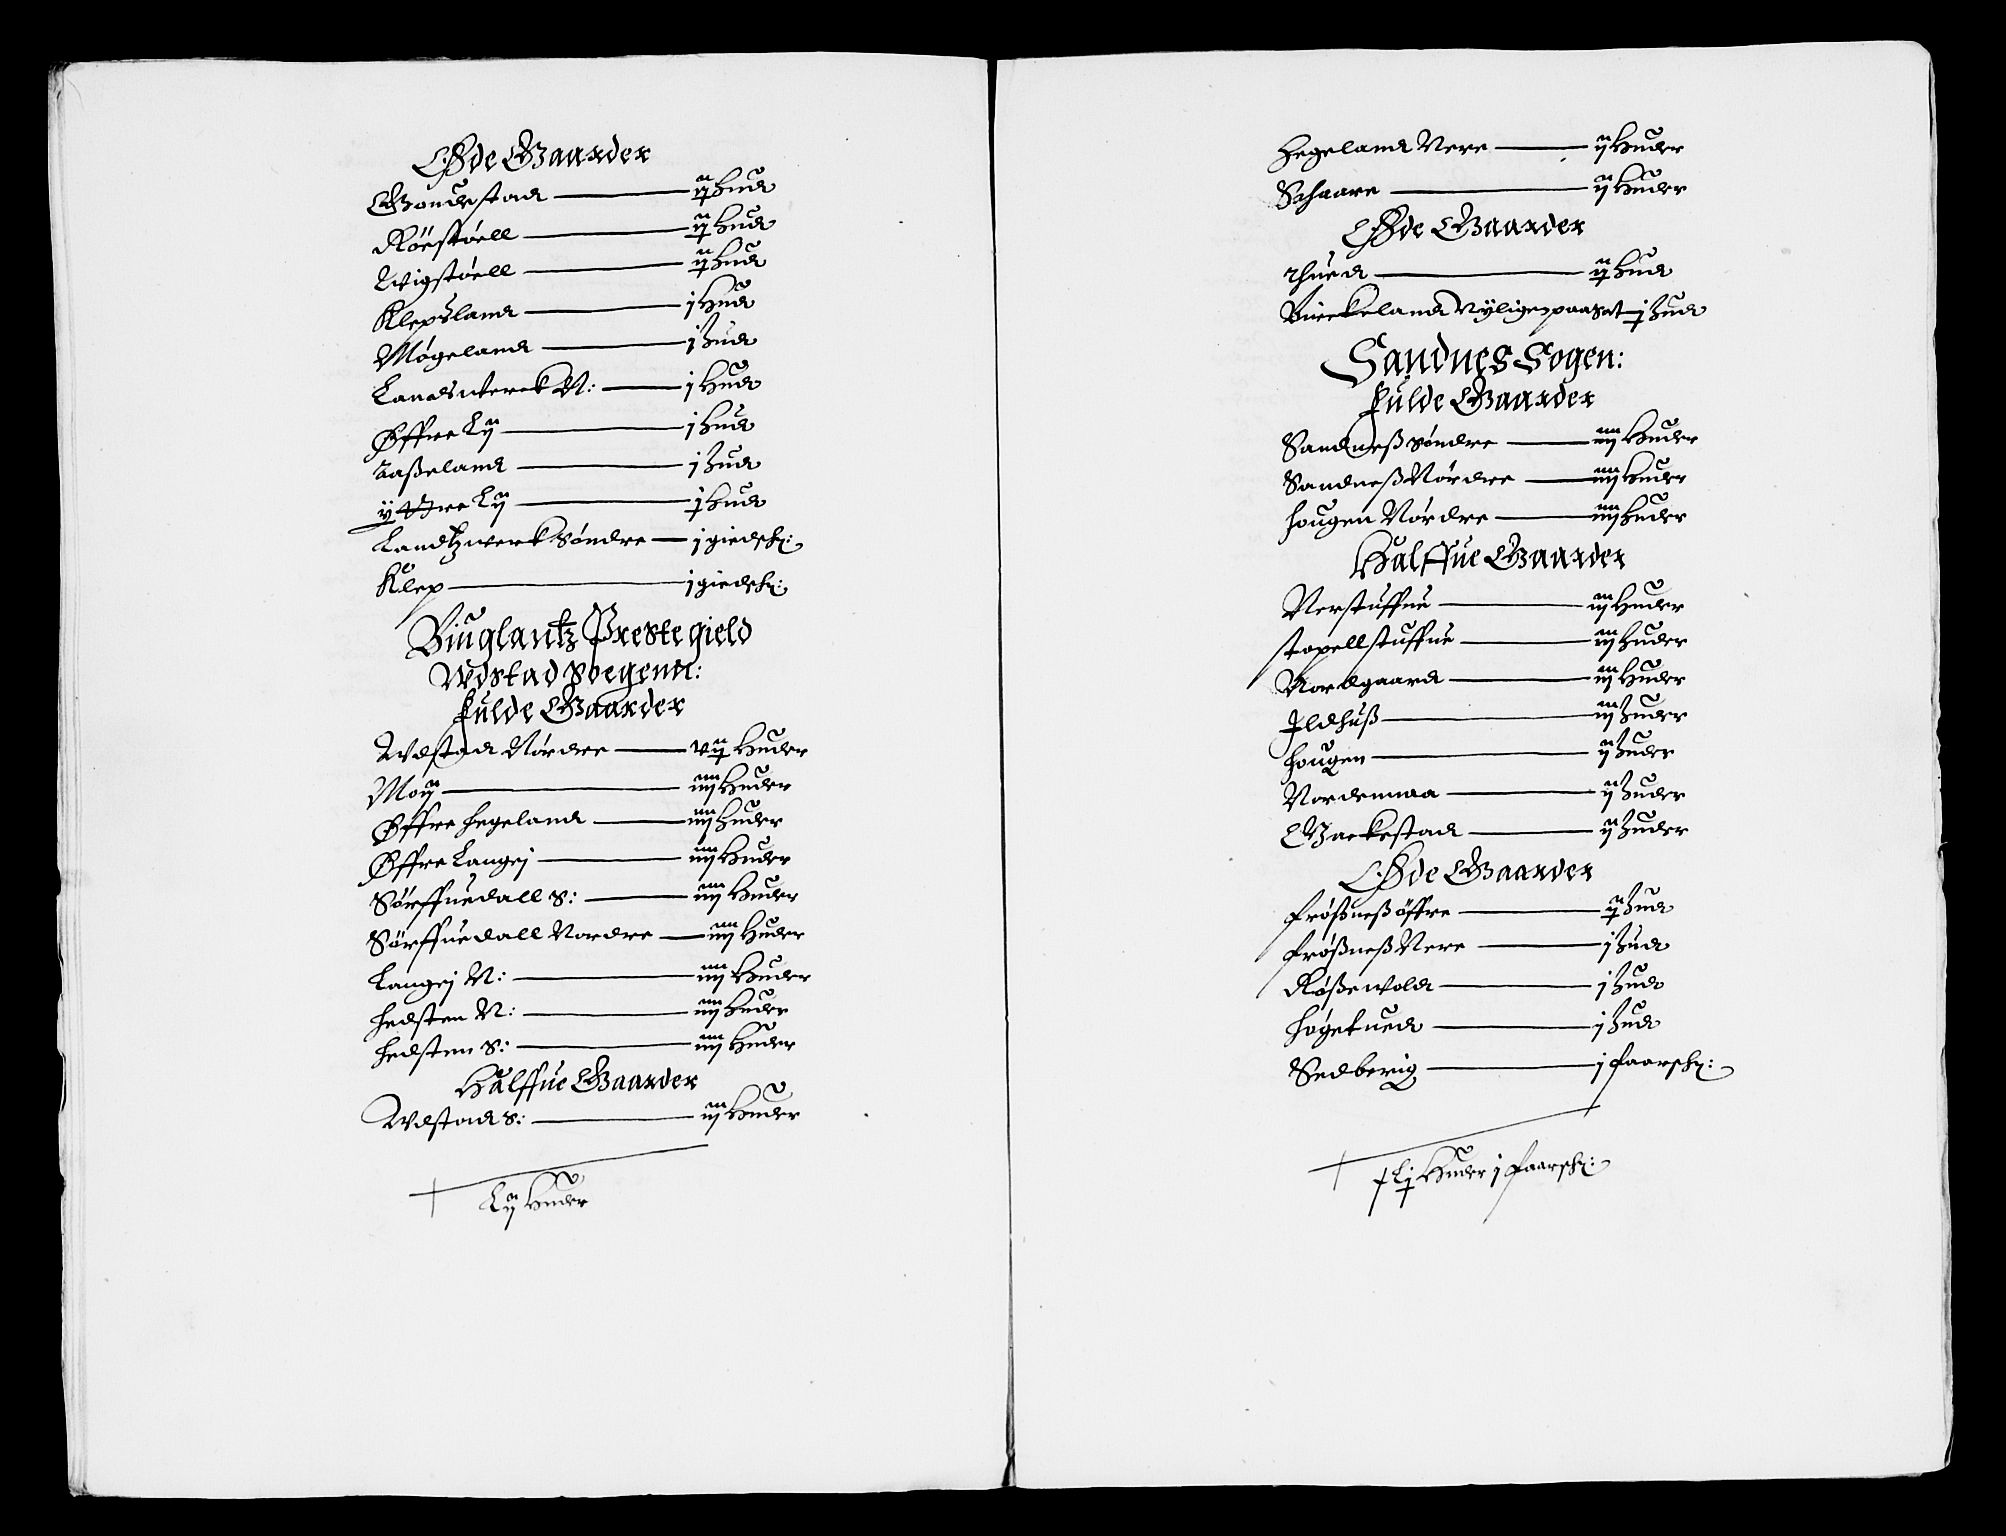 Øde Gaarder
Gondestad — ij Hud
Røestøell — ij Hud
Wigstøell — ij Hud
Klepsland — j Hud
Møgeland — j Hud
Landswerck N: — j Hud
Øffre Lij — j Hud
Taßeland — j Hud
ÿttre Lij — j Hud
Landtzwerk Søndre — j giedsk:
Klep — j giedsk:
Biuglantz Prestegield
Wdstad Soegenn:
Fulde Gaarder
Wdstad Nørdre — vij Huder
Moÿ — iiij Huder
Øffre Hegeland — iiij Huder
Øffre Langej — iiij Huder
Sørffuedall S: — iiij Huder
Sørffuedall Nordre — iiij Huder
Langej N: — iiij Huder
Hedsten N: — iiij Huder
Hedsten S: — iiij Huder
Halffue Gaarder
Wdstad S: — iij Huder
Lij Huder
Hegeland Nere — ij Huder
Schaare — ij Huder
Øde Gaarder
Thued — ij Hud
Birckeland Nyligen paasat — j Hud
Sandnes Sogen:
Fulde Gaarder
Sandneß Søndre — iiij Huder
Sandneß Nørdre — iiij Huder
Hougen Nørdre — iiij Huder
Halffue Gaarder
Nerstuffue — iij Huder
Stopellstuffue — iij Huder
Nordgaard — iij Huder
Ildhuß — iij Huder
Hougen — ij Huder
Nordenaaa — ij Huder
Backestad — ij Huder
Øde Gaarder
Frøßneß øffre — ij Hud
Frøßneß Nere — j Hud
Røßewold — j Hud
Høgetued — j Hud
Sedberig — j faarsk:
Lj Huder j faarsk: